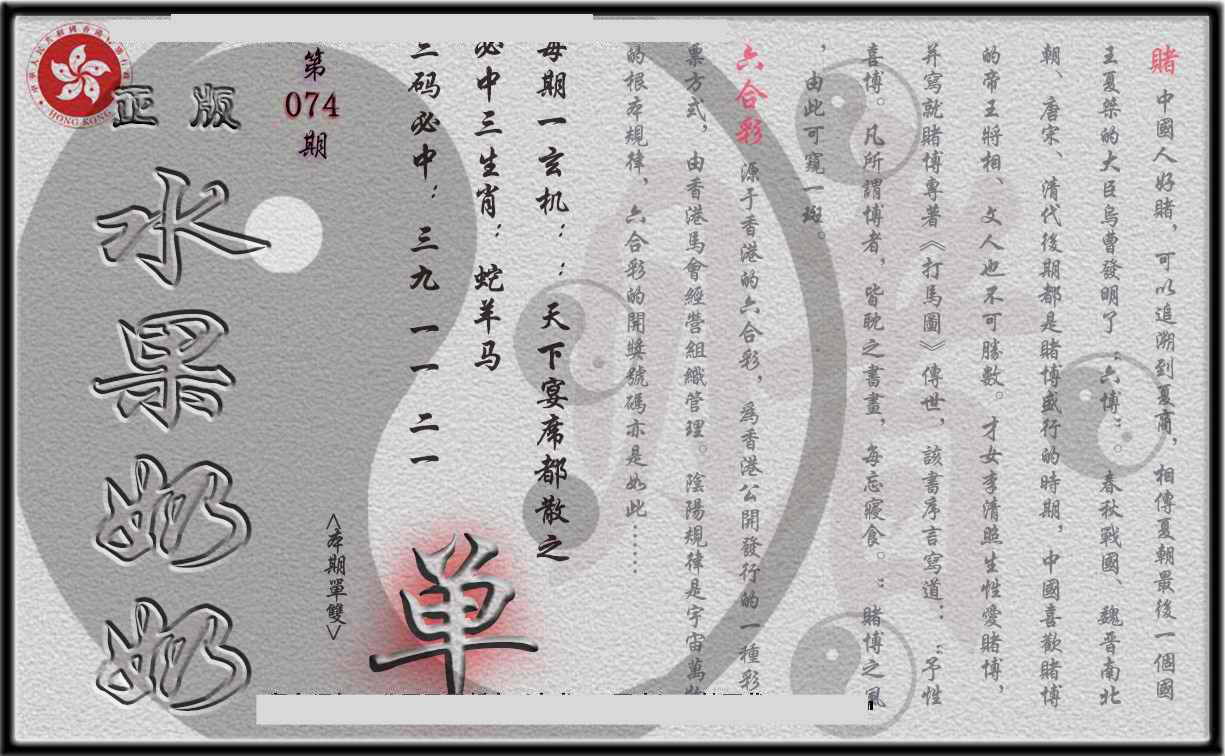 賭 中國人好賭，可以追溯到夏商，相傳夏朝最後一個國
王夏桀的大臣烏曹發明了“六博”。春秋戰國、魏晉南北
朝、唐宋、清代後期都是賭博盛行的時期，中國喜歡賭博
的帝王將相、文人也不可勝數。才女李清照生性愛賭博，
并寫就賭博專著《打馬圖》傳世，該書序言寫道：“予性
喜博。凡所謂博者，皆耽之書畫，每忘寢食。”賭博之風
，由此可窺一斑。
六合彩 源于香港的六合彩，為香港公開發行的一種彩
票方式，由香港馬會經營組織管理。陰陽規律是宇宙萬物
的根本規律，六合彩的開獎號碼亦是如此……
每期一玄机：：天下宴席都散之
必中三生肖：蛇羊马
三码必中：三九 一一 二一
单
<本期單雙>
第
074
期
正版
水果奶奶
HONG KONG